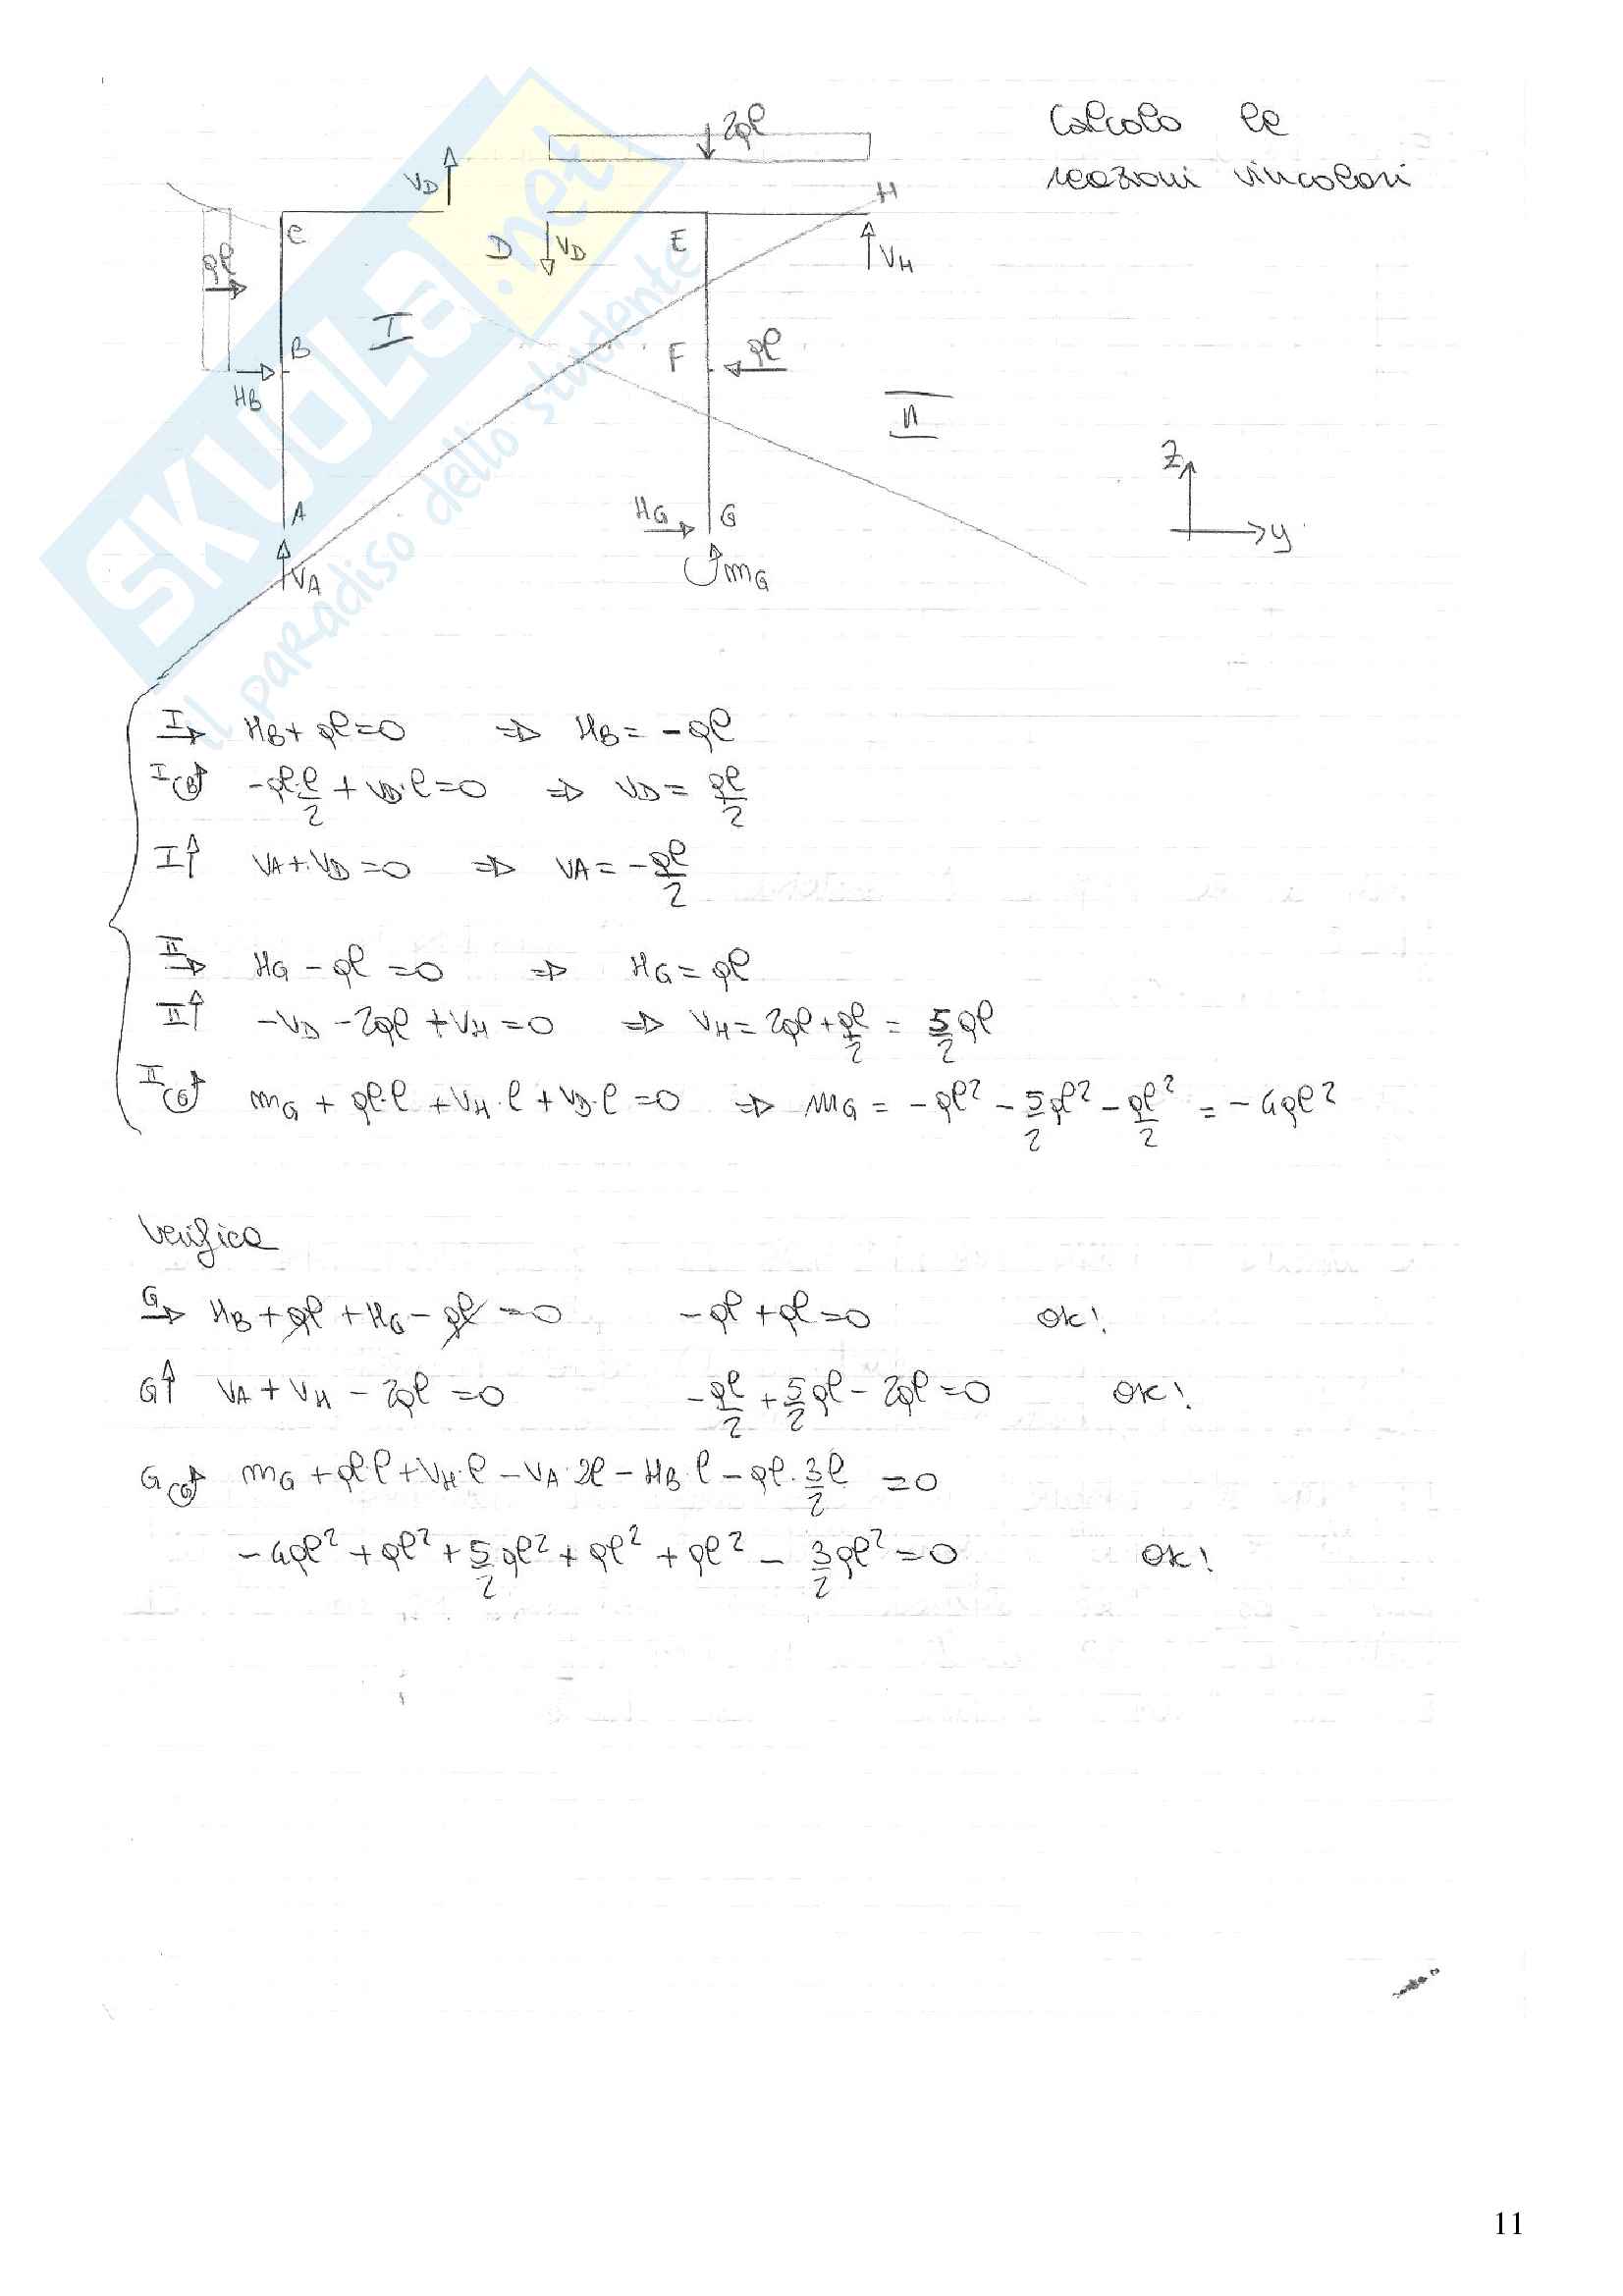 Calcolo le
reazioni vincolari
2ql
V_D
H
C
D
V_D
E
V_H
ql
I
B
F
ql
H_B
II
Z
A
H_G
G
y
V_A
m_G
SKUOLA.net
il paradiso dello studente
I → H_B + ql = 0 ⇒ H_B = -ql
I (B) -ql·l/2 + V_D·l = 0 ⇒ V_D = ql/2
I ↑ V_A + V_D = 0 ⇒ V_A = -ql/2
II → H_G - ql = 0 ⇒ H_G = ql
II ↑ -V_D - 2ql + V_H = 0 ⇒ V_H = 2ql + ql/2 = 5/2 ql
II (G) m_G + ql·l + V_H·l + V_D·l = 0 ⇒ m_G = -ql² - 5/2 ql² - ql²/2 = -4ql²
Verifica
G → H_B + ql + H_G - ql = 0 -ql + ql = 0 OK!
G ↑ V_A + V_H - 2ql = 0 -ql/2 + 5/2 ql - 2ql = 0 OK!
G (G) m_G + ql·l + V_H·l - V_A·2l - H_B·l - ql·3/2 l = 0
-4ql² + ql² + 5/2 ql² + ql² + ql² - 3/2 ql² = 0 OK!
11